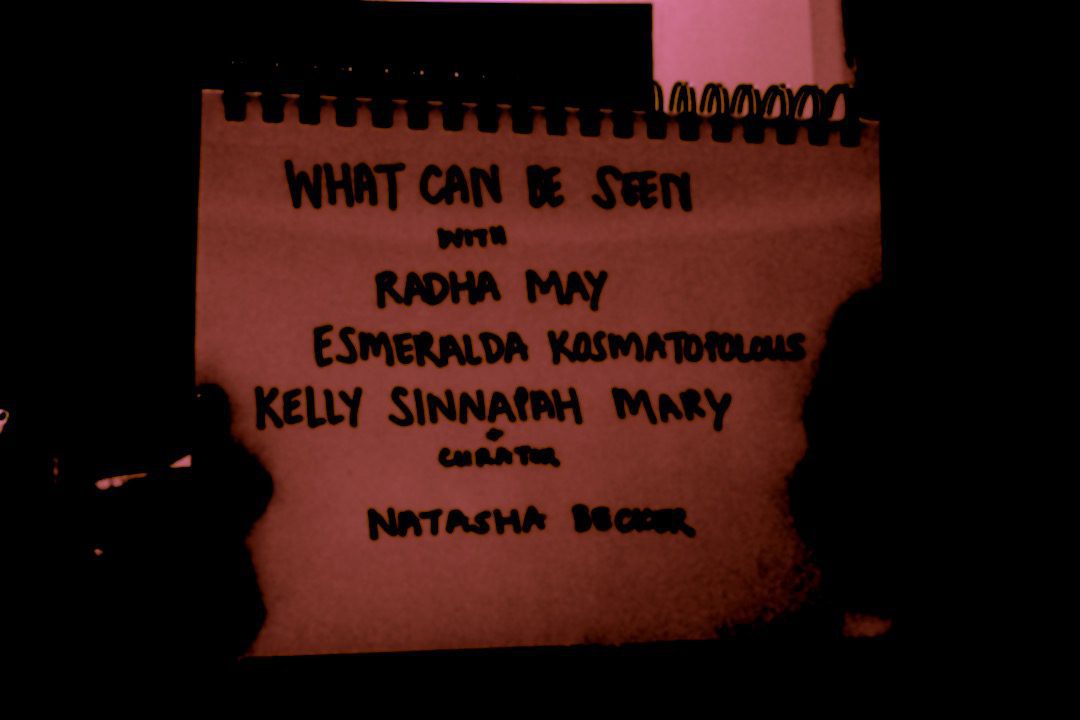 WHAT CAN BE SEEN
WITH
RADHA MAY
ESMERALDA KOSMATOPOLOUS
KELLY SINNAPAH MARY
+
CURATOR
NATASHA BECKER